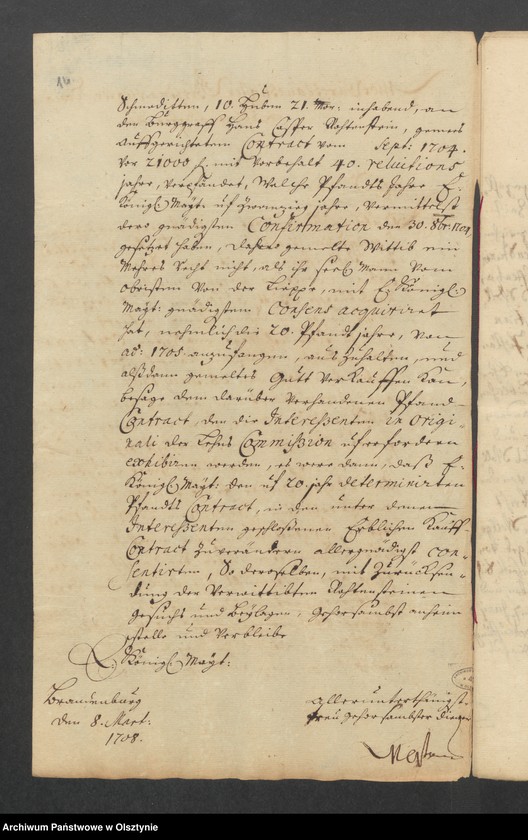 Schmoditten, 10. Huben 21. Mor: inhabend, an
den Burggraff Hans Casper Rohtenstein, gemees
auffgerichtetem Contract vom Sept: 1704.
vor 21000 f. mit Vorbehalt 40. reluitions
jahre, verpfändet, Welche Pfandts Jahre E.
Königl: Mayt: uf zwanzig jahre, Vermittelst
dero gnädigsten Confirmation den 30. 8br: 1704
gesetzet haben, Dahero gemelte Wittib ein
Mehres Recht nicht, als ihr seel: Mann Vom
obristen Von der mit E Königl:
Mayt: gnädigstem Consens acquiriret
hat, nehmlich die 20. Pfandt jahre, Von
ao: 1705 anzufangen, auszuhalten, und
alßdann gemeltes Gutt Verkauffen kan,
besage dem darüber Verhandenen Pfand-
Contract, den die Interessenten in origi-
nali der Lehns Commission uferfordern
exhibiren werden, es were dann, daß E.
Königl: Mayt: den uf 20. jahr determinirten
Pfandts Contract, in den unter denen
Interessenten geschloßenen Erblichen Kauff-
Contract zuverandern allergnädigst con-
sentirten, So deroselben, mit Zurücksen-
dung der Verwittibten Rohtensteinen
gesuchs und Beylagen, gehorsambst anheim
stelle und Verbleibe
E. Königl: Mayt:
Brandenburg
den 8. Mart:
1708.
allerunterthänigst-
treu gehorsambster Diener
Archiwum Państwowe w Olsztynie